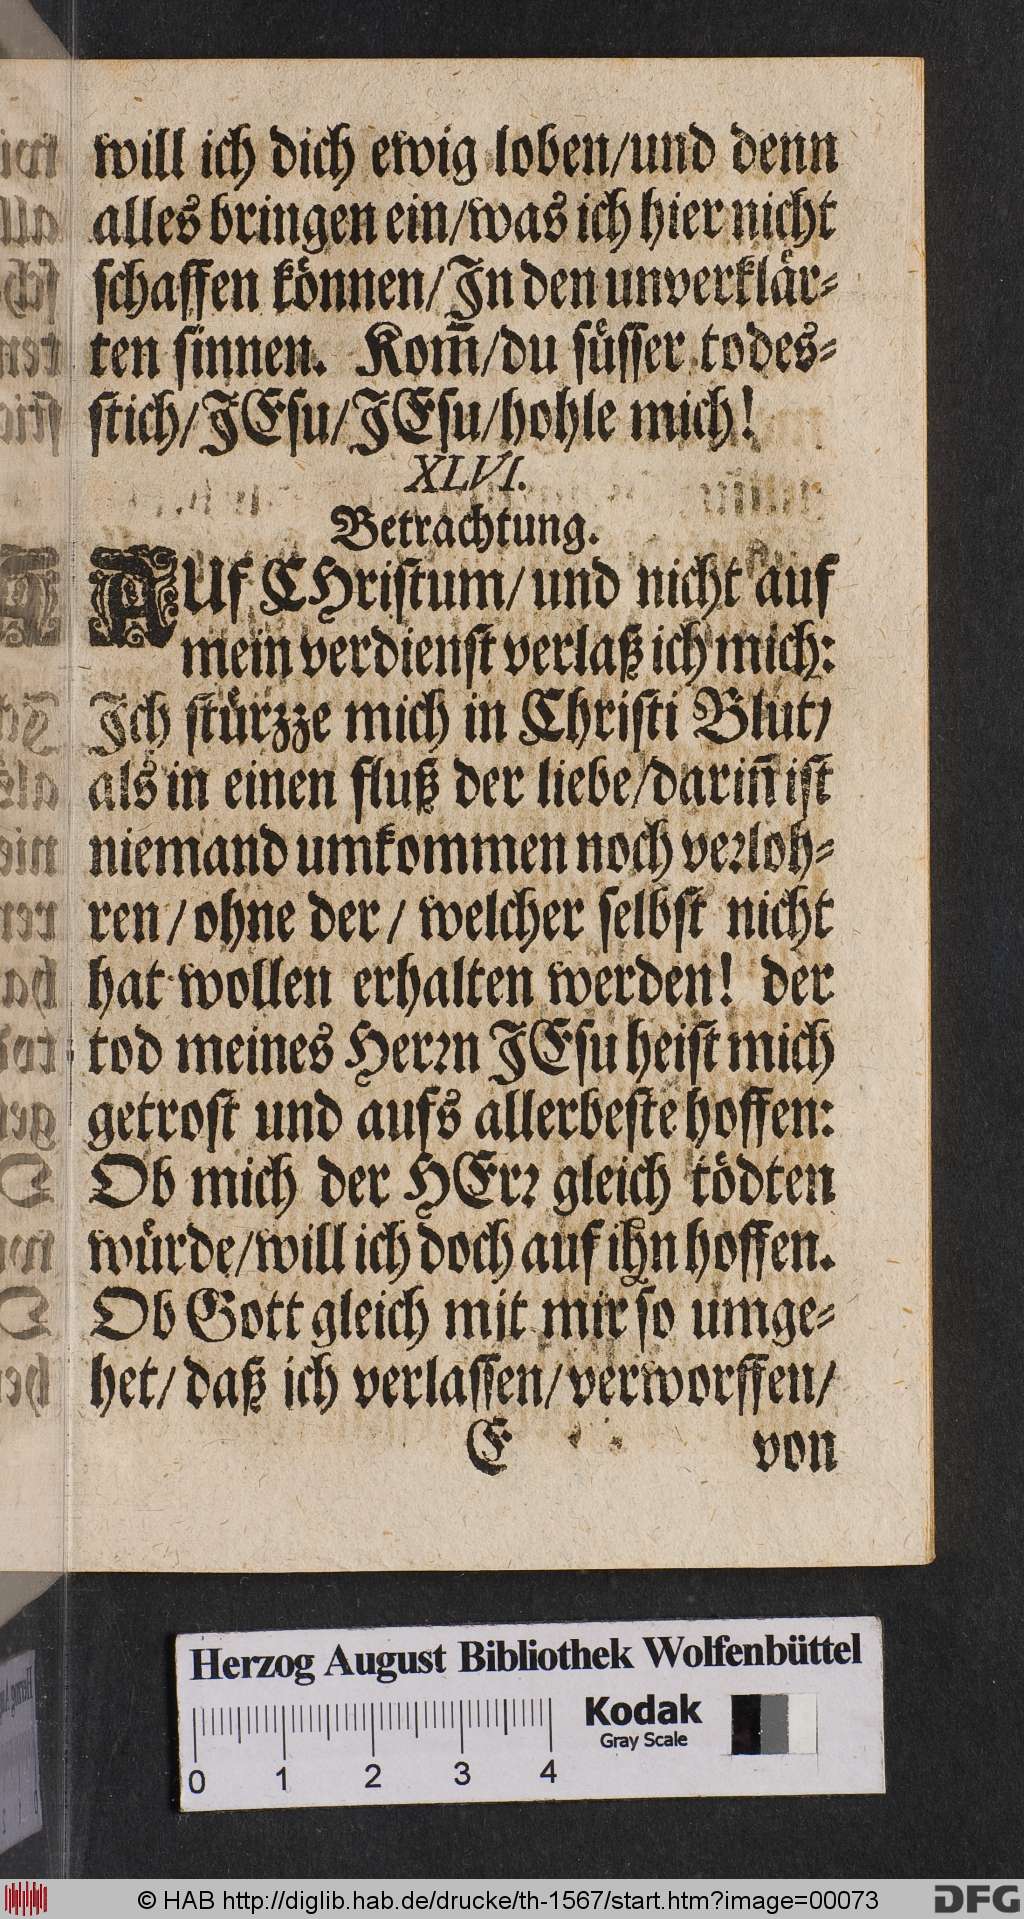 will ich dich ewig loben/und denn
alles bringen ein/was ich hier nicht
schaffen koͤnnen/In den unverklaͤr⸗
ten sinnen. Kom̃/du suͤsser todes⸗
stich/JEsu/JEsu/hohle mich!
XLVI.
Betrachtung.
AUf CHristum/und nicht auf
mein verdienst verlaß ich mich:
Ich stuͤrzze mich in Christi Blut/
als in einen fluß der liebe/darin̄ ist
niemand umkommen noch verloh⸗
ren/ohne der/welcher selbst nicht
hat wollen erhalten werden! der
tod meines Herrn JEsu heist mich
getrost und aufs allerbeste hoffen:
Ob mich der HErr gleich toͤdten
wuͤrde/will ich doch auf ihn hoffen.
Ob Gott gleich mit mir so umge⸗
het/daß ich verlassen/verworffen/
E von
Herzog August Bibliothek Wolfenbüttel
Kodak
Gray Scale
0 1 2 3 4
© HAB http://diglib.hab.de/drucke/th-1567/start.htm?image=00073
DFG